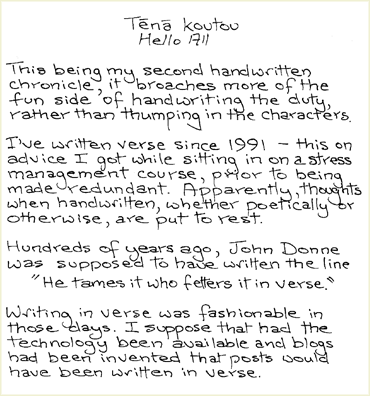 Tēnā koutou
Hello 1711
This being my second handwritten
chronicle, it broaches more of the
fun side of handwriting the duty,
rather than thumping in the characters.
I've written verse since 1991 – this on
advice I got while sitting in on a stress
management course, prior to being
made redundant. Apparently, thoughts
when handwritten, whether poetically or
otherwise, are put to rest.
Hundreds of years ago, John Donne
was supposed to have written the line
"He tames it who fetters it in verse."
Writing in verse was fashionable in
those days. I suppose that had the
technology been available and blogs
had been invented that posts would
have been written in verse.